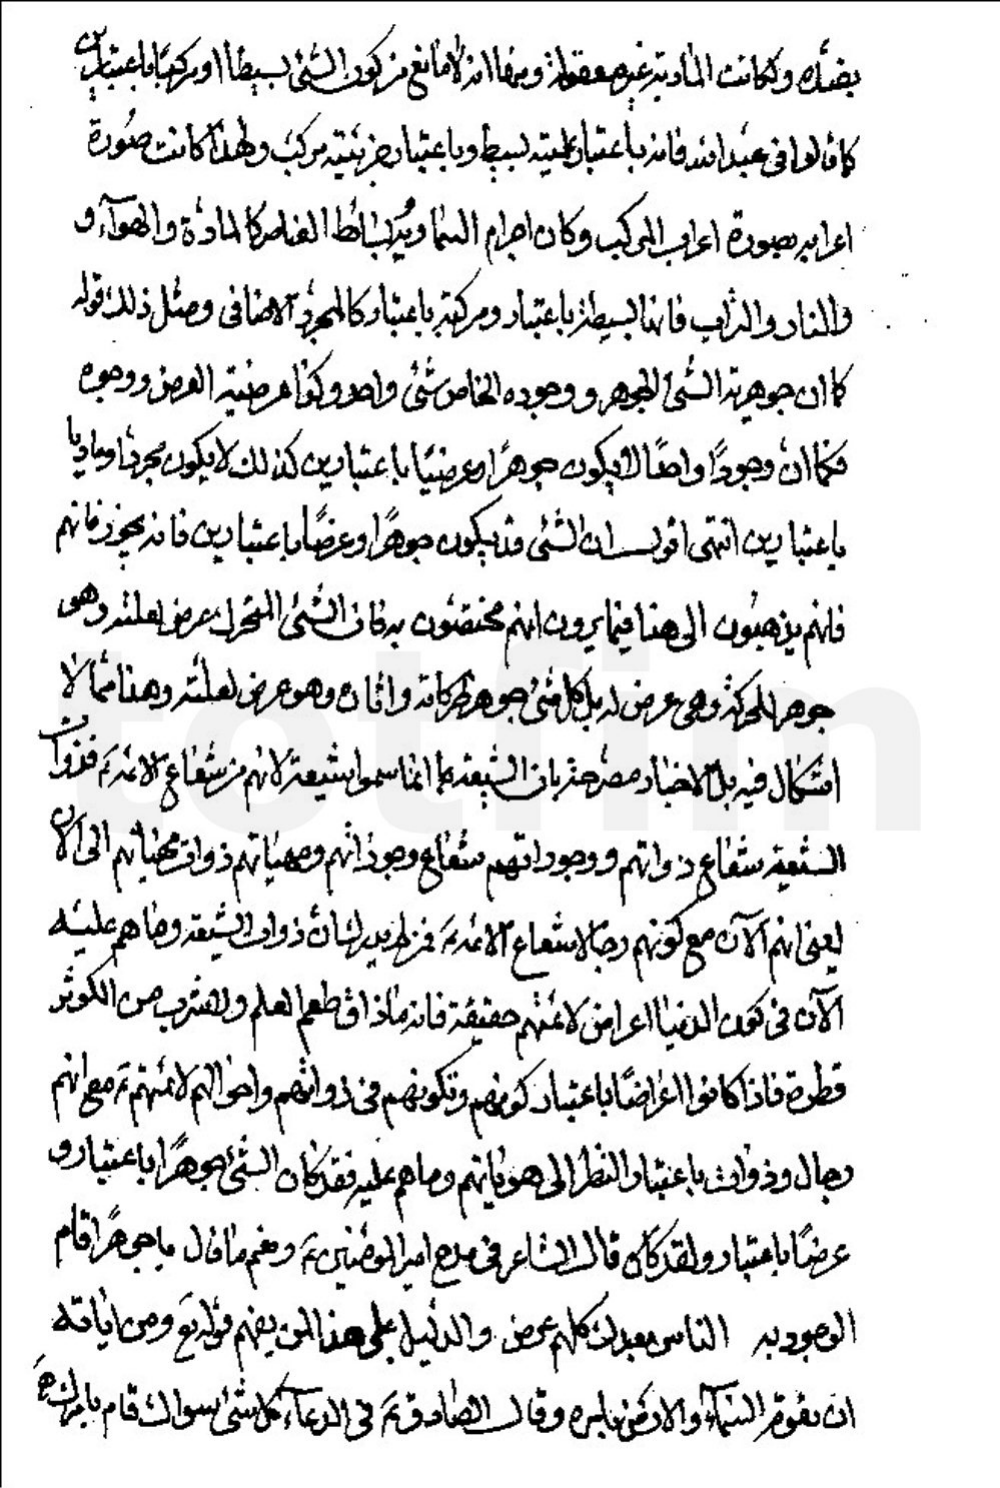 بضدّه ولكانت المادية غير معقولة ومنها انه لا مانع من كون الشئ بسيطاً او مركبّاً باعتبارين
كما قالوا فى عبد الله فانه باعتبار علميته بسيط وباعتبار جزئيته مركب ولهذا كانت صورة
اعرابه بصورة اعراب المركب وكان اجرام السماوية بسائط العناصر كالمادة والهوآء و
والنار والتراب فانها بسيطة باعتبار ومركبة باعتبار كالمجرد الاضافى ومثل ذلك قوله
كما ان جوهرية الشئ الجوهر ووجوده الخاص شئ واحد وكذا عرضية العرض ووجوده
فكما ان وجودًا واحدًا لا يكون جوهرًا وعرضيًا باعتبارين كذلك لا يكون مجردًا وماديا
باعتبارين انتهى اقول ان الشئ قد يكون جوهرًا وعرضًا باعتبارين فانه يجوز فانهم
فانهم يذهبون الى هذا فيما يرون انهم مختصون به فان الشئ المتحرك عرض لعلته وهو
جوهر للحركة وهى عرض له بل كل شئ جوهر لحركاته واثاره وهو عرض لعلته وهذا مما لا
اشكال فيه بل الاخبار مصرحة بان الشيعة انما سموا شيعة لانهم من شعاع الائمه ع فذوات
الشيعة شعاع ذواتهم ووجوداتهم شعاع وجوداتهم ومهياتهم ذوات مهياتهم الى الآن
يعنى انهم الآن مع كونهم رجالا شعاع الائمه ع فمن لم يدر بان ذوات الشيعة وما هم عليه
الآن فى كون الدنيا اعراض لائمتهم حقيقة فانه ماذاق طعم العلم ولا شرب من الكوثر
قطرة فاذا كانوا اعراضًا باعتبار كونهم وتكونهم فى ذواتهم واحوالهم لائمتهم ع مع انهم
رجال وذوات باعتبار النظر الى هوياتهم وما هم عليه فقد كان الشئ جوهرًا باعتبار و
عرضًا باعتبار ولقد كان قال الشاعر فى مدح امير المؤمنين ع ونعم ما قال يا جوهرًا قام
الوجود به الناس بعدك كلهم عرض والدليل على هذا لمن يفهم قوله تع ومن اياته
ان تقوم السمآء والارض بامره وقال الصادق ع فى الدعآء كل شئ سواك قام بامرك